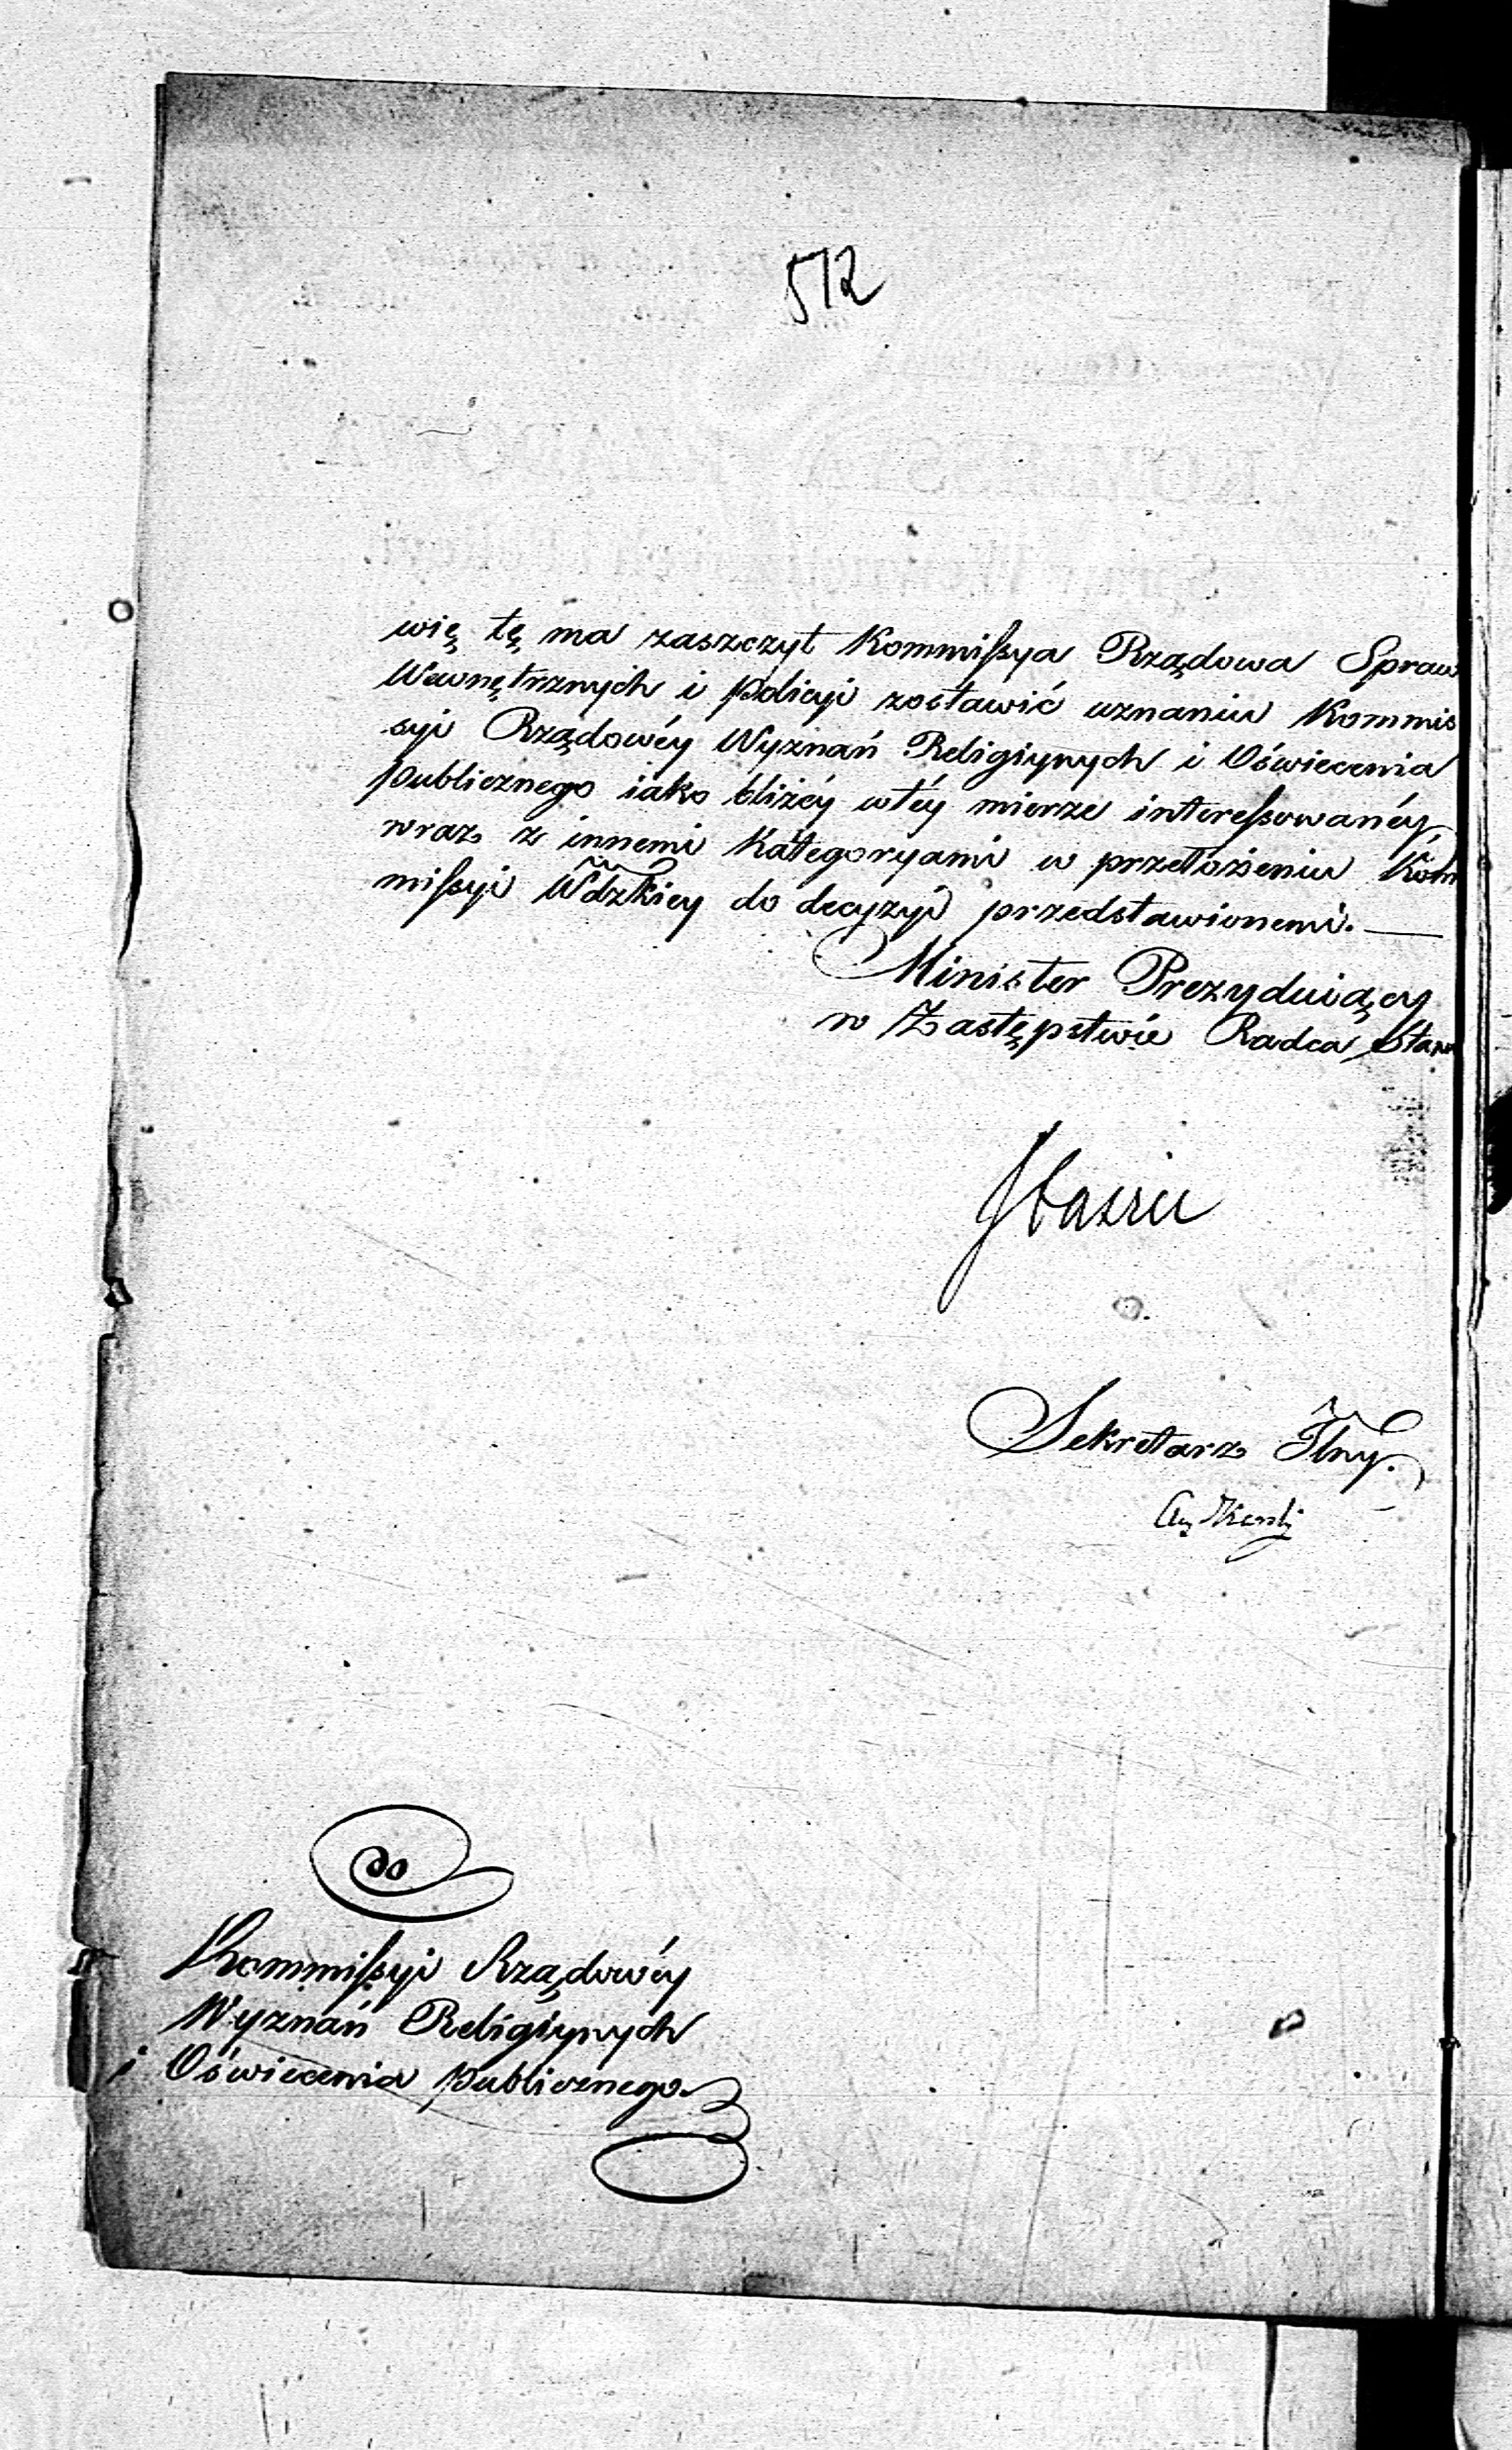 512
wię tę ma zaszczyt Kommissya Rządowa Spraw
Wewnętrznych i Policyi zostawić uznaniu Kommis
syi Rządowéy Wyznań Religiynych i Oświecenia
publicznego iako bliżéy wtéy mierze interessowanéy,
wraz z innemi Kategoryami w przełożeniu Kom
missyi Wdzkiey do decyzyi przedstawionemi.
Minister Prezyduiący
w Zastępstwie Radca Stanu
Sekretarz Jlny.
do
Kommissyi Rządowéy
Wyznań Religiynych
i Oświecenia publicznego